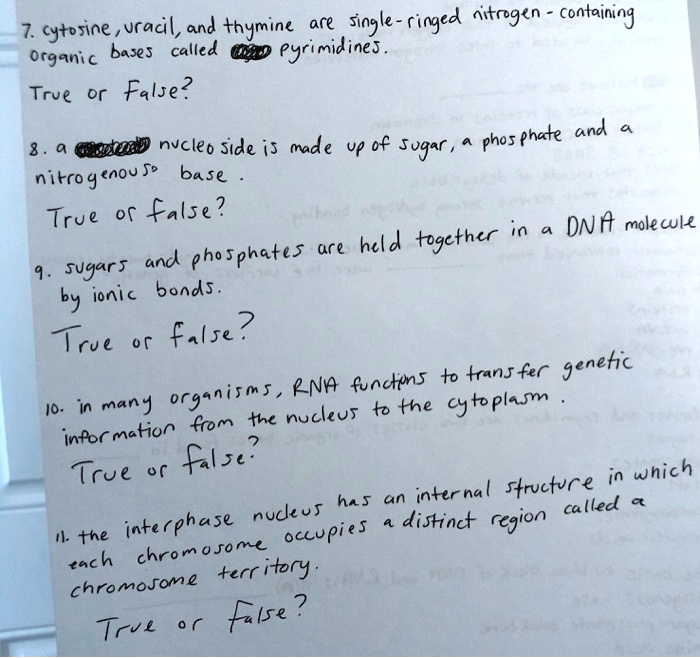 7. cytosine, uracil, and thymine are single-ringed nitrogen-containing
organic bases called pyrimidines.
True or False?
8. a nucleoside is made up of sugar, a phosphate and a
nitrogenous base.
True or false?
9. sugars and phosphates are held together in a DNA molecule
by ionic bonds.
True or false?
10. in many organisms, RNA functions to transfer genetic
information from the nucleus to the cytoplasm.
True or false?
11. the interphase nucleus has an internal structure in which
each chromosome occupies a distinct region called a
chromosome territory.
True or false?